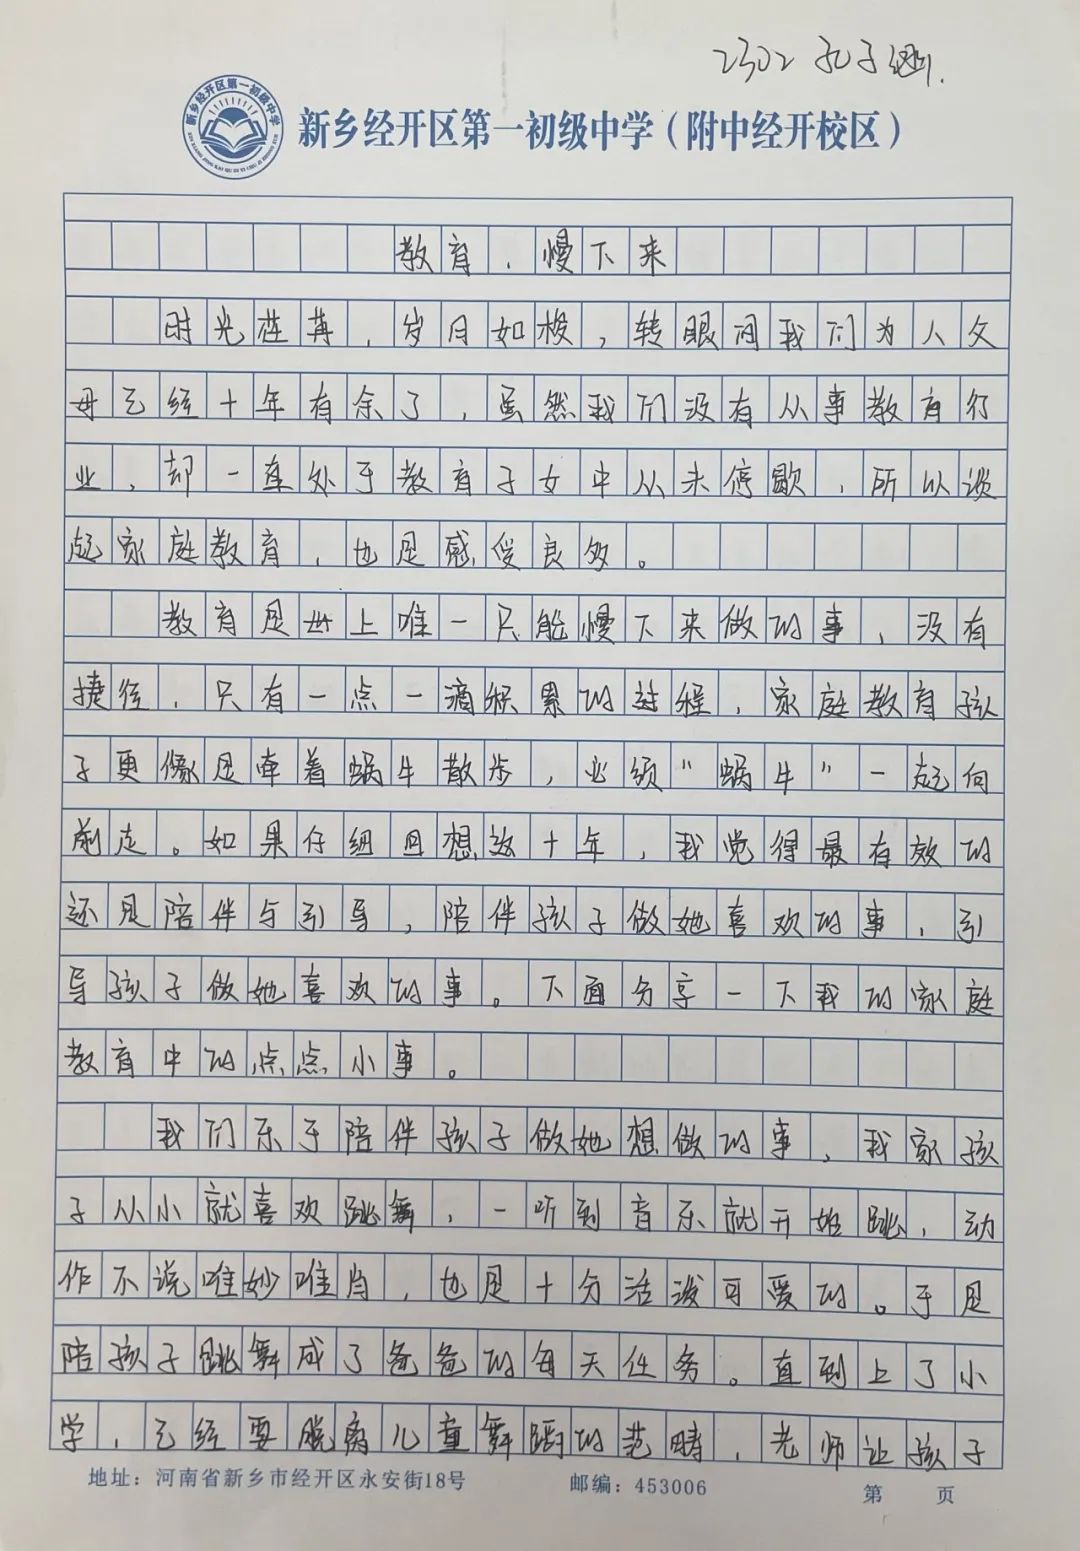 2302 孔子
新乡经开区第一初级中学
新乡经开区第一初级中学（附中经开校区）
教育，慢下来
时光荏苒，岁月如梭，转眼间我们为人父
母已经十年有余了，虽然我们没有从事教育行
业，却一直处于教育子女中从未停歇，所以谈
起家庭教育，也是感受良多。
教育是世上唯一只能慢下来做的事，没有
捷径，只有一点一滴积累的过程，家庭教育孩
子更像是牵着蜗牛散步，必须“蜗牛”一起向
前走。如果仔细回想这十年，我觉得最有效的
还是陪伴与引导，陪伴孩子做她喜欢的事，引
导孩子做她喜欢的事。下面分享一下我的家庭
教育中的点点小事。
我们乐于陪伴孩子做她想做的事，我家孩
子从小就喜欢跳舞，一听到音乐就开始跳，动
作不说唯妙唯肖，也是十分活泼可爱的。于是
陪孩子跳舞成了爸爸的每天任务。直到上了小
学，已经要脱离儿童舞蹈的范畴，老师让孩子
地址：河南省新乡市经开区永安街18号 邮编：453006 第 页